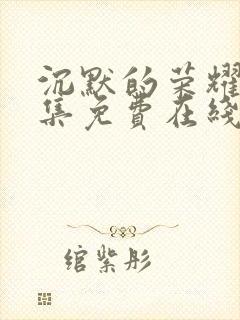 沉默的荣耀
集免费在线
绾紫彤